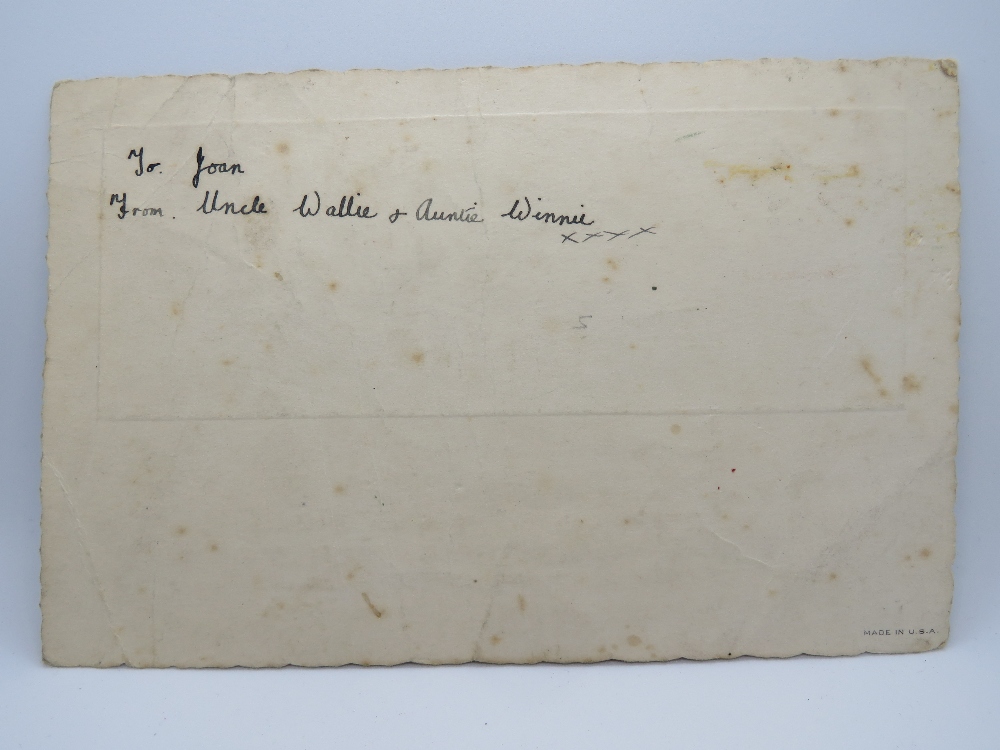 To. Joan
From. Uncle Wallie & Auntie Winnie
xxxx
5
MADE IN U.S.A.